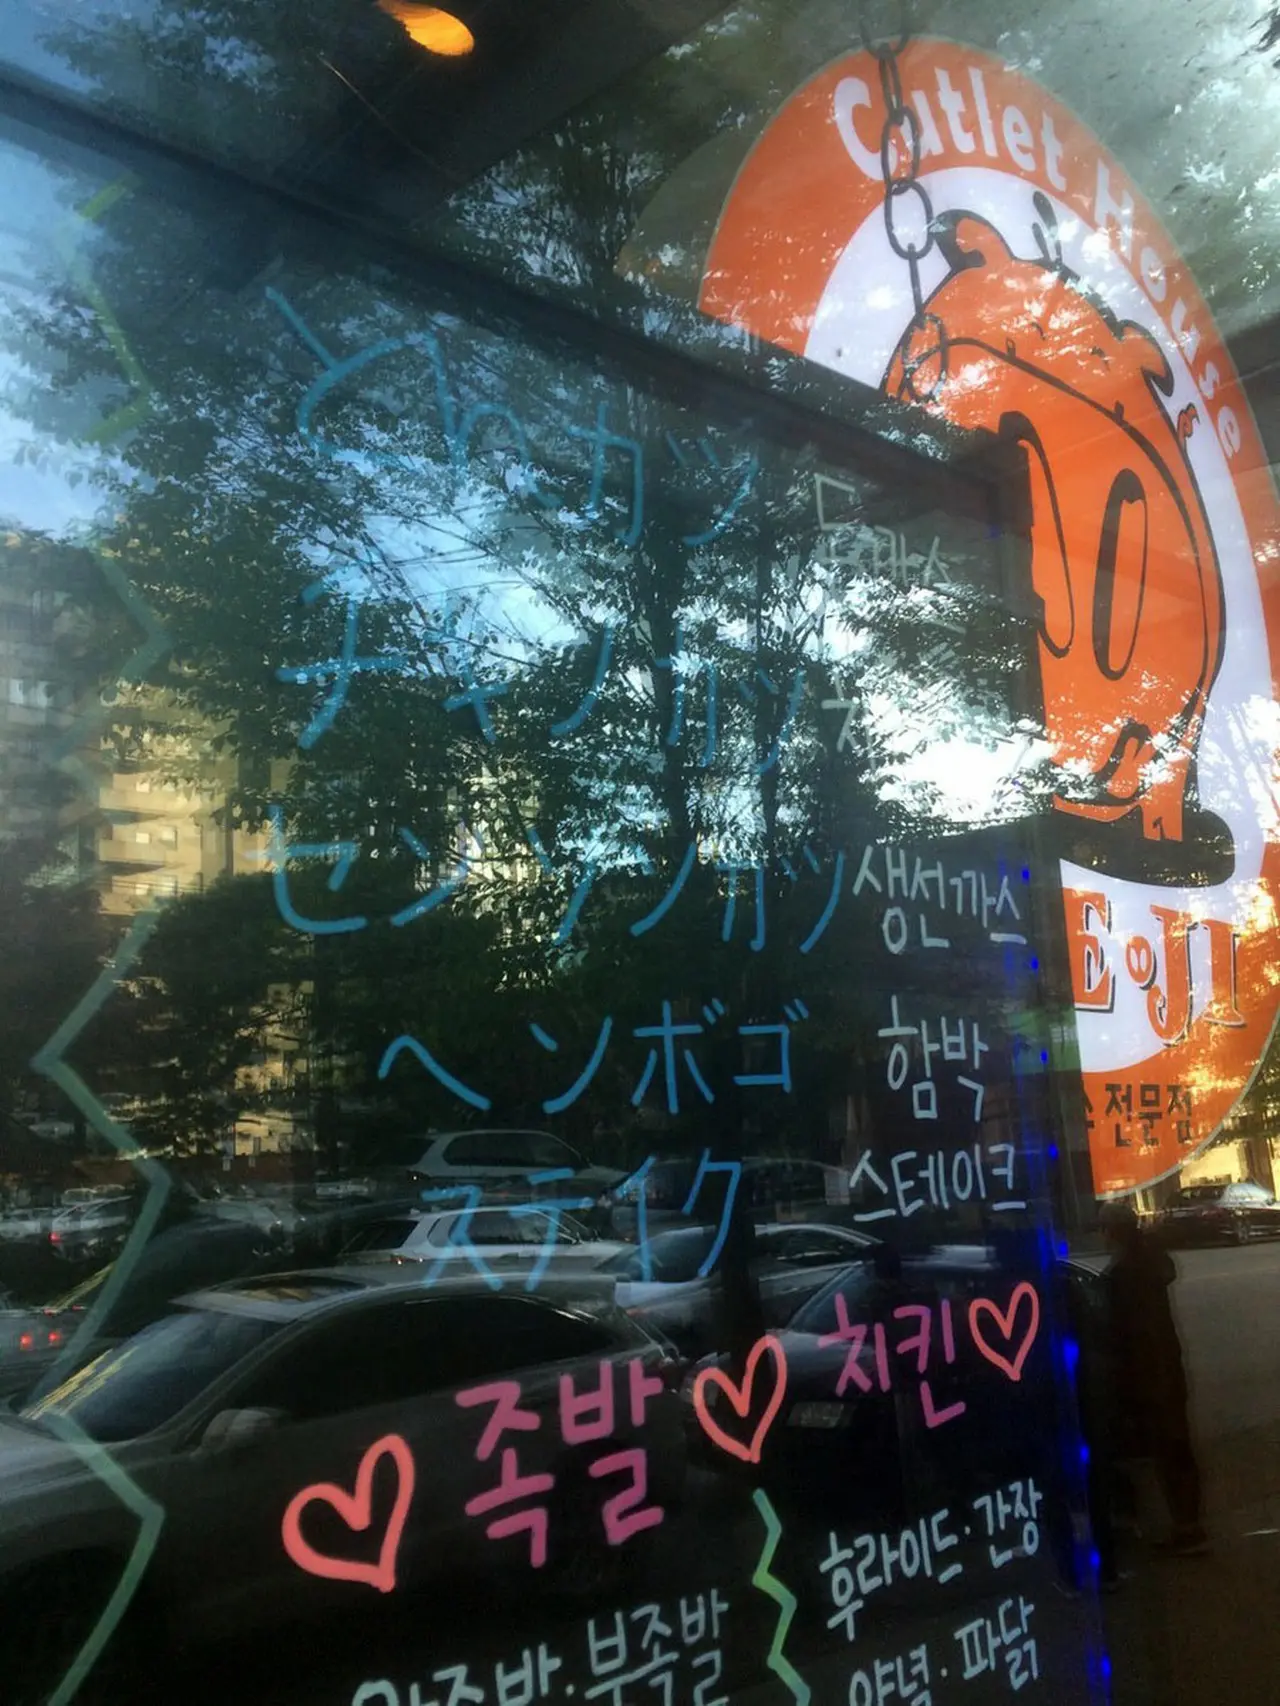 Cutlet House
とんカツ 돈까스
チキンカツ 치
センソンカツ 생선까스
ヘンボゴ 함박
ステイク 스테이크
E·JI
전문점
♡ 족발 ♡ 치킨 ♡
후라이드·간장
양념·파닭
왕족발·부족발